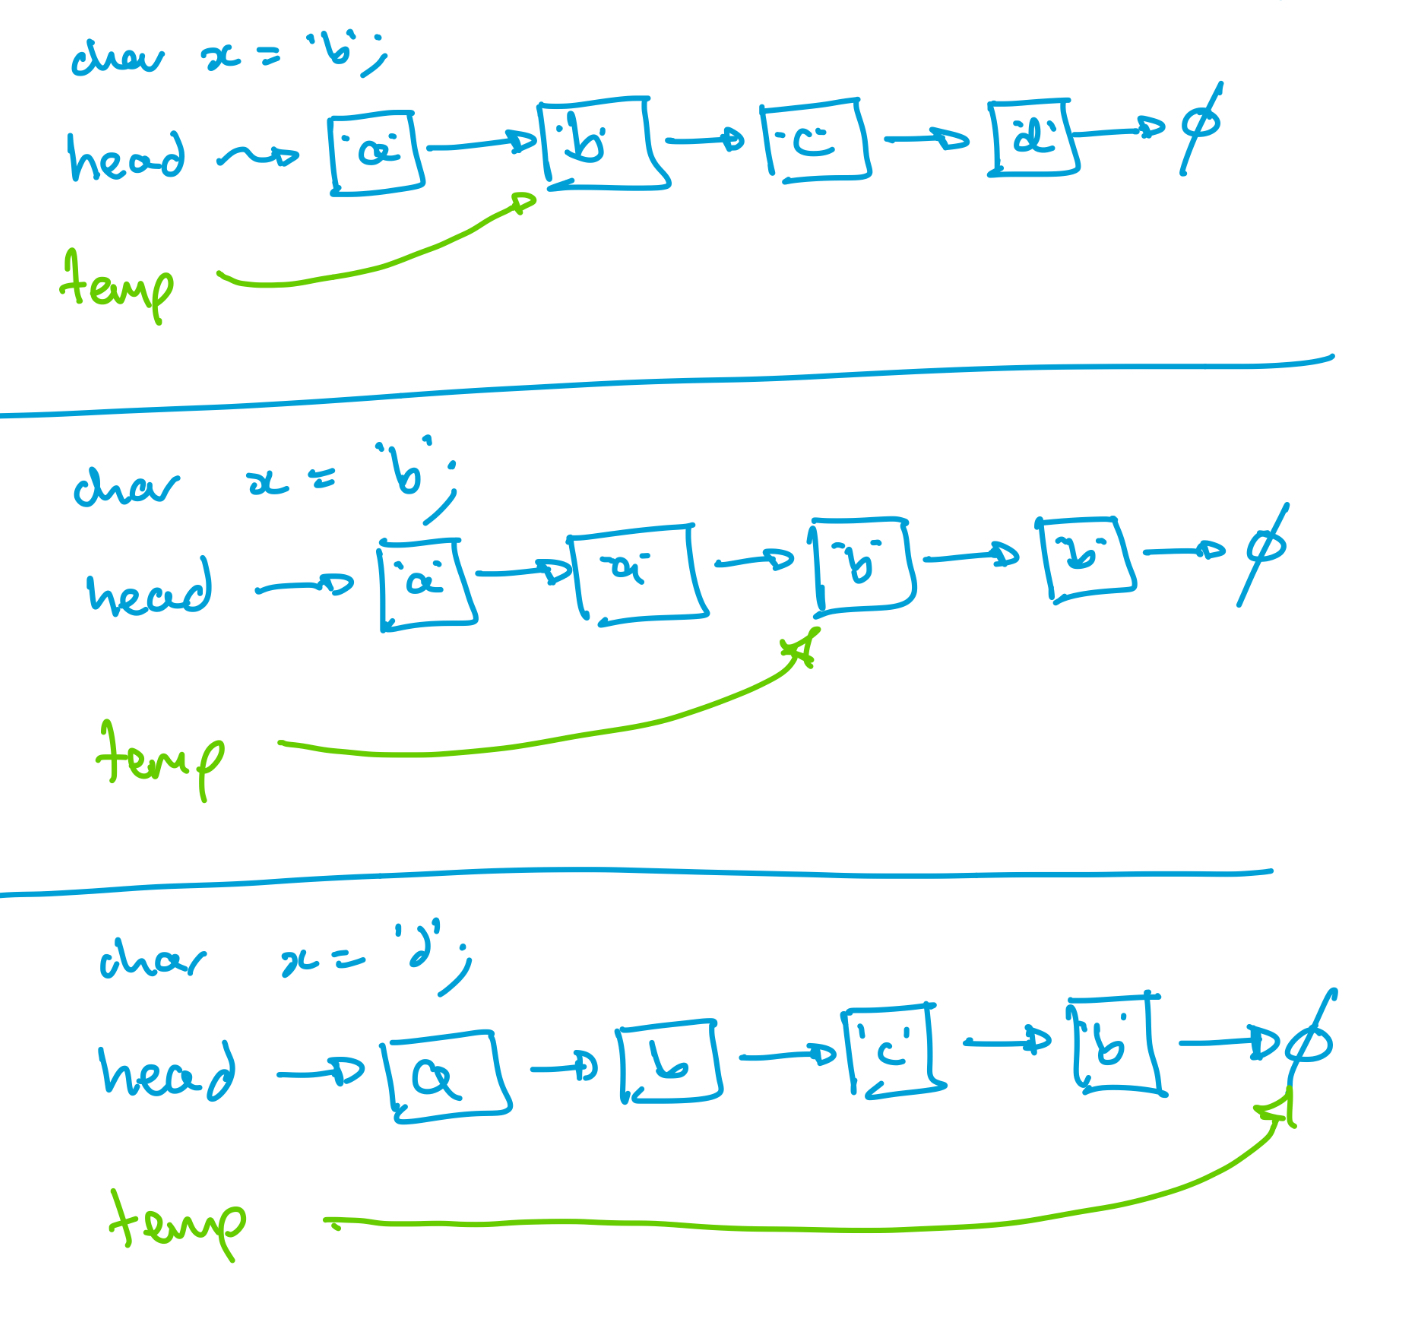 char x = 'b';
head 'a' 'b' 'c' 'd' ∅
temp
char x = 'b';
head 'a' 'a' 'b' 'b' ∅
temp
char x = 'd';
head a b 'c' 'b' ∅
temp